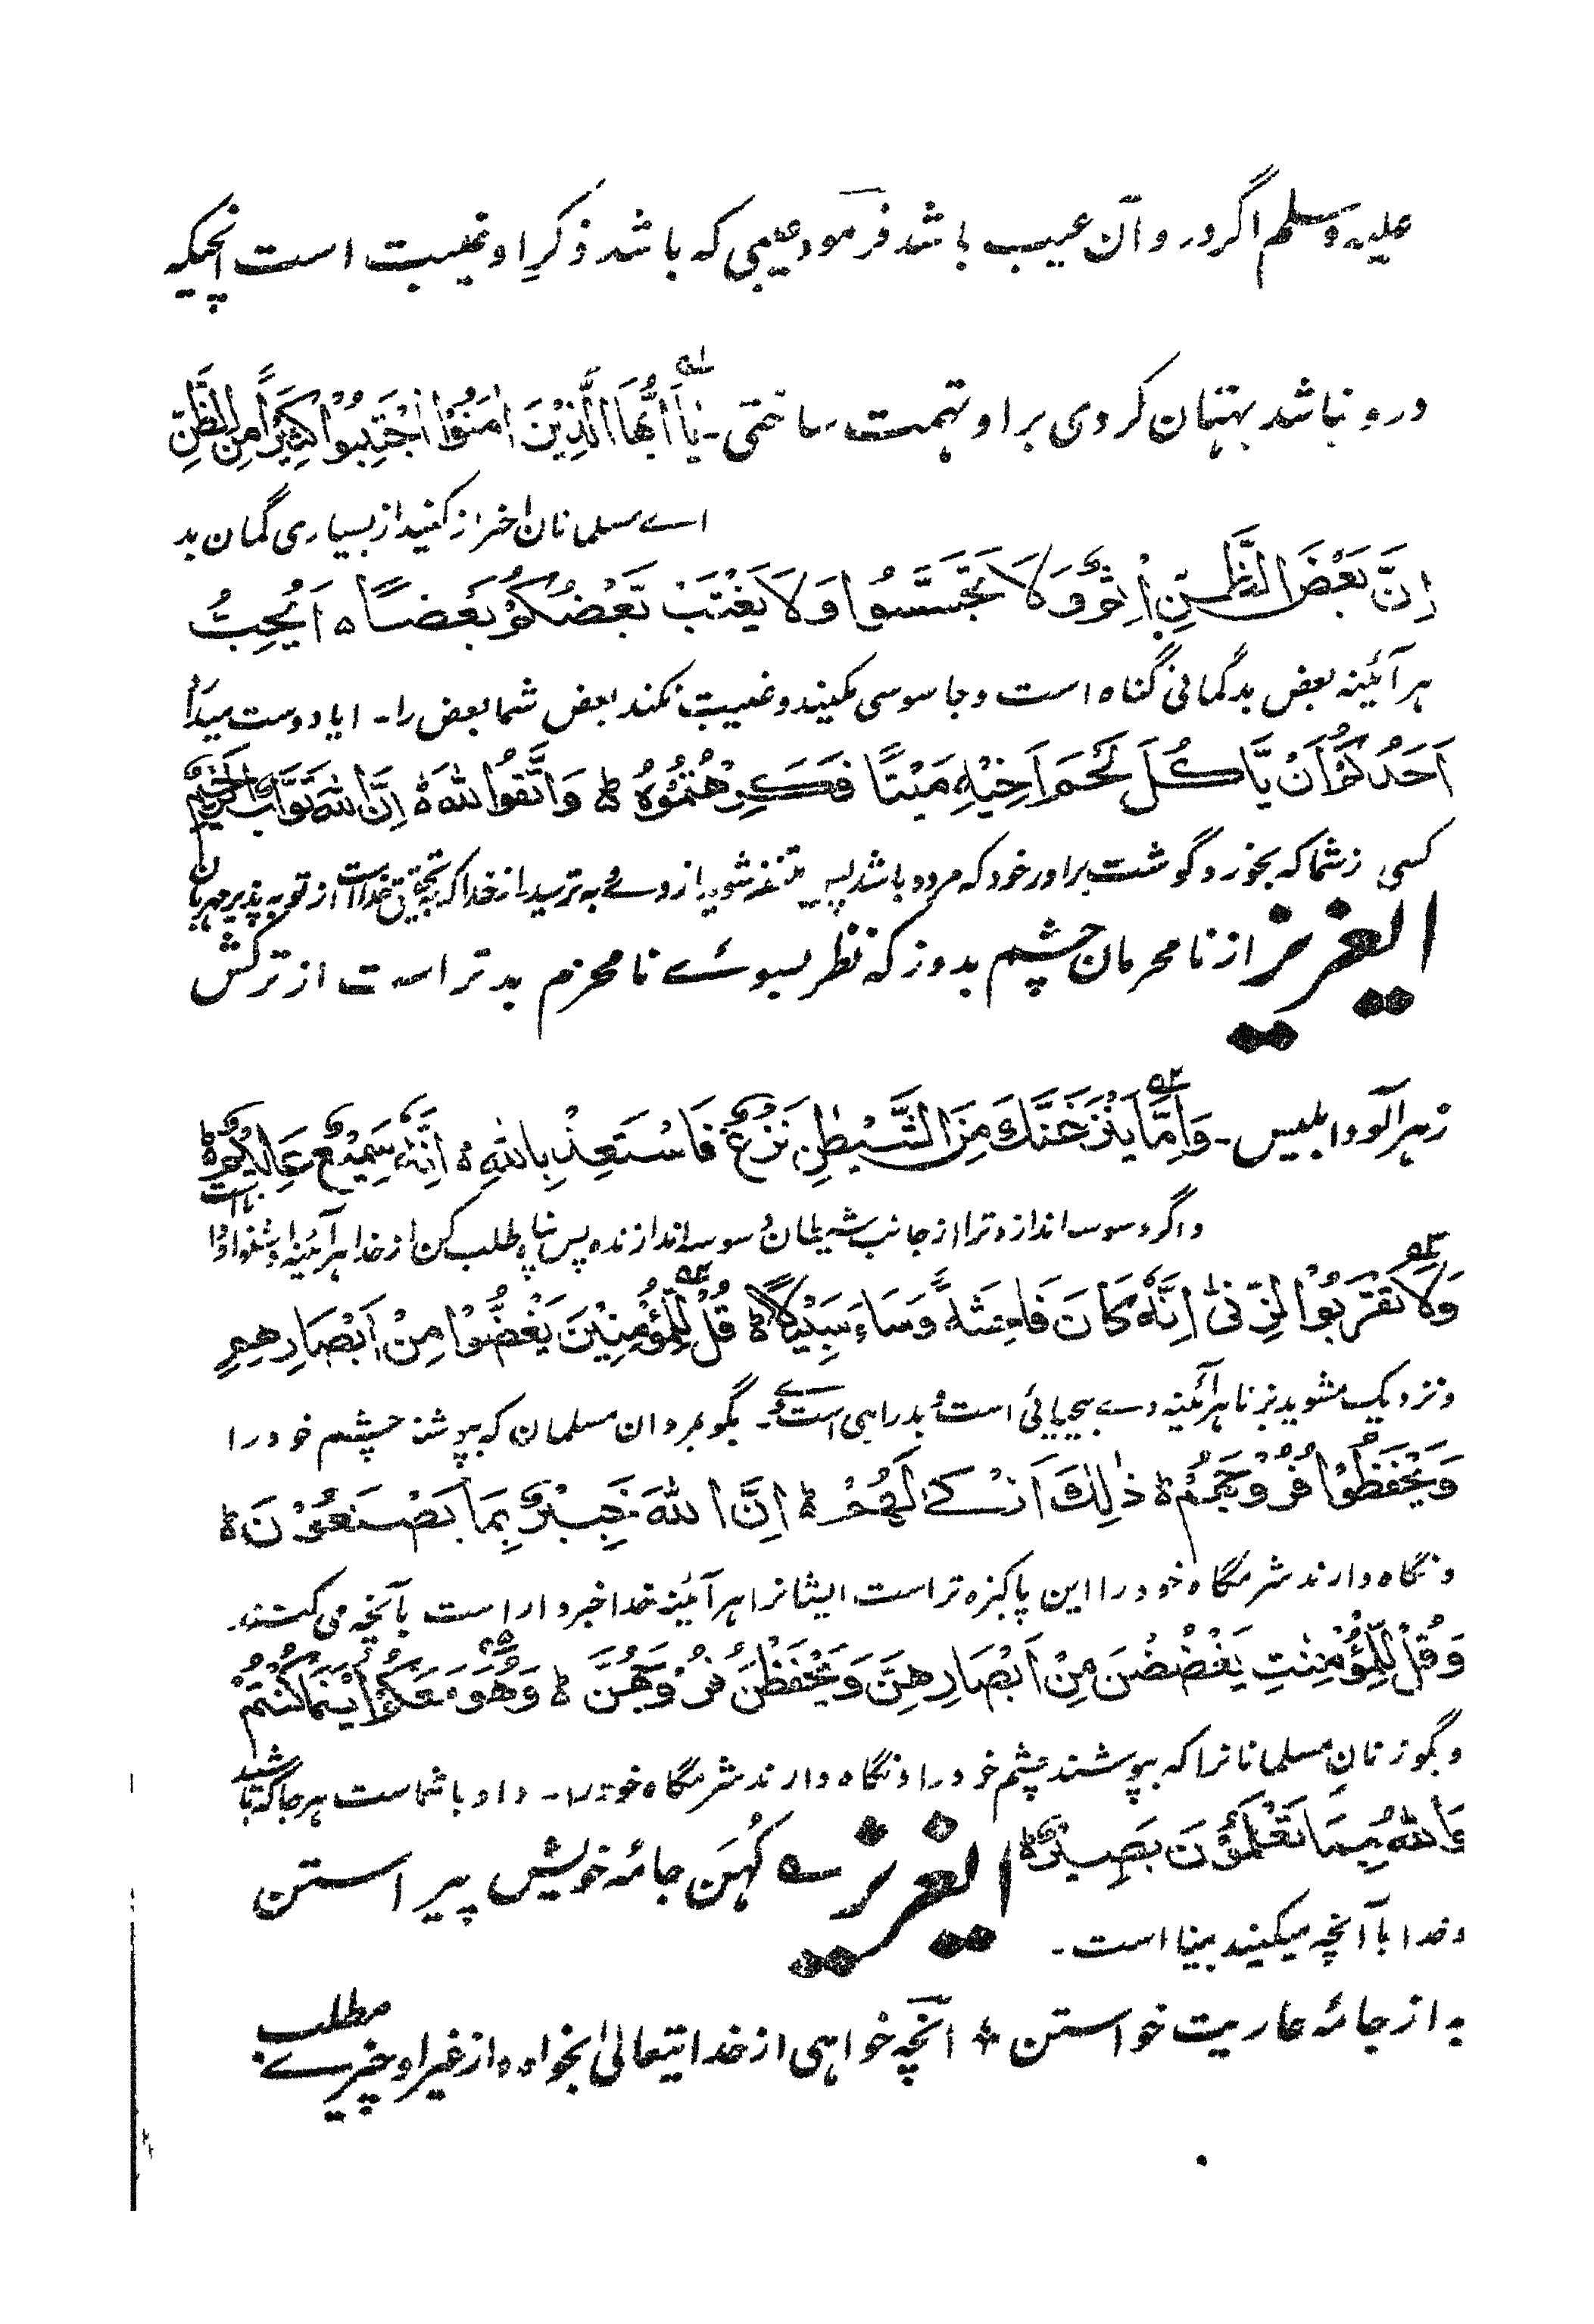 علیہ وسلم اگر در و آن عیب باشد فرمود عیبی که باشد ذکرِ او غیبت است انچیکه
درو نباشد بهتان کردی بر او تهمت ساختی ۔ یٰۤاَیُّهَا الَّذِیْنَ اٰمَنُوْا اجْتَنِبُوْا کَثِیْرًا مِّنَ الظَّنِّ
اے مسلمانان احتراز کنید از بسیاری گمان بد
اِنَّ بَعْضَ الظَّنِّ اِثْمٌ وَّلَا تَجَسَّسُوْا وَلَا یَغْتَبْ بَّعْضُکُمْ بَعْضًا ہ اَیُحِبُّ
هر آئینه بعض بدگمانی گناه است و جاسوسی مکنید و غیبت نکند بعض شما بعض را۔ ایا دوست میدارد
اَحَدُکُمْ اَنْ یَّاکُلَ لَحْمَ اَخِیْهِ مَیْتًا فَکَرِهْتُمُوْهُ ط وَاتَّقُوا اللهَ ط اِنَّ اللهَ تَوَّابٌ رَّحِیْمٌ
کسی ز شما که بخورد گوشت برادر خود که مرده باشد پس متنفر شوید از وے و به ترسید از خدا که بتحقیق خدا است از توبه پذیر مهربان
ایعزیز از نامحرمان چشم بدوز که نظر بسوئے نامحرم بدتر است از ترکش
زهرآلود ابلیس ۔ وَاِمَّا یَنْزَغَنَّكَ مِنَ الشَّیْطٰنِ نَزْغٌ فَاسْتَعِذْ بِاللهِ ط اِنَّهٗ سَمِیْعٌ عَلِیْمٌ ط
و اگر وسوسه اندازد ترا از جانب شیطان وسوسه اندازنده پس پناه طلب کن از خدا هر آئینه او شنوا و دانا است
وَلَا تَقْرَبُوا الزِّنٰی اِنَّهٗ کَانَ فَاحِشَةً وَّسَاءَ سَبِیْلًا ط قُلْ لِّلْمُؤْمِنِیْنَ یَغُضُّوْا مِنْ اَبْصَارِهِمْ
و نزدیک مشوید بزنا هر آئینه وے بیحیائی است و بد راهی است وے ۔ بگو بمردان مسلمان که بپوشند چشم خود را
وَیَحْفَظُوْا فُرُوْجَهُمْ ط ذٰلِكَ اَزْکٰی لَهُمْ ط اِنَّ اللهَ خَبِیْرٌۢ بِمَا یَصْنَعُوْنَ ط
و نگاه دارند شرمگاه خود را این پاکیزه تر است ایشانرا هر آئینه خدا خبردار است بآنچه می کنند
وَقُلْ لِّلْمُؤْمِنٰتِ یَغْضُضْنَ مِنْ اَبْصَارِهِنَّ وَیَحْفَظْنَ فُرُوْجَهُنَّ ط وَهُوَ مَعَکُمْ اَیْنَمَا کُنْتُمْ
و بگو زنانِ مسلمانانرا که بپوشند چشم خود را و نگاه دارند شرمگاه خود را۔ و او با شماست هر جا که باشید
وَاللهُ بِمَا تَعْلَمُوْنَ بَصِیْرٌ ط ایعزیز ے کُهَن جامۂ خویش پیراستن
و خدا بآ آنچه میکنید بینا است ۔
به از جامۂ عاریت خواستن ٭ انچه خواهی از خدایتعالیٰ بخواه و از غیر او چیزے مطلب